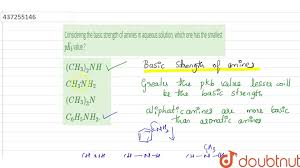 437255146
Considering the basic strength of amines in aqueous solution, which one has the smallest pKb value ?
(CH3)2NH
CH3NH2
(CH3)3N
C6H5NH2
Basic Strength of amines
Greater the pkb value lesser will
be the basic strength
aliphatic amines are more basic
than aromatic amines
NH2
CH3
doubtnut